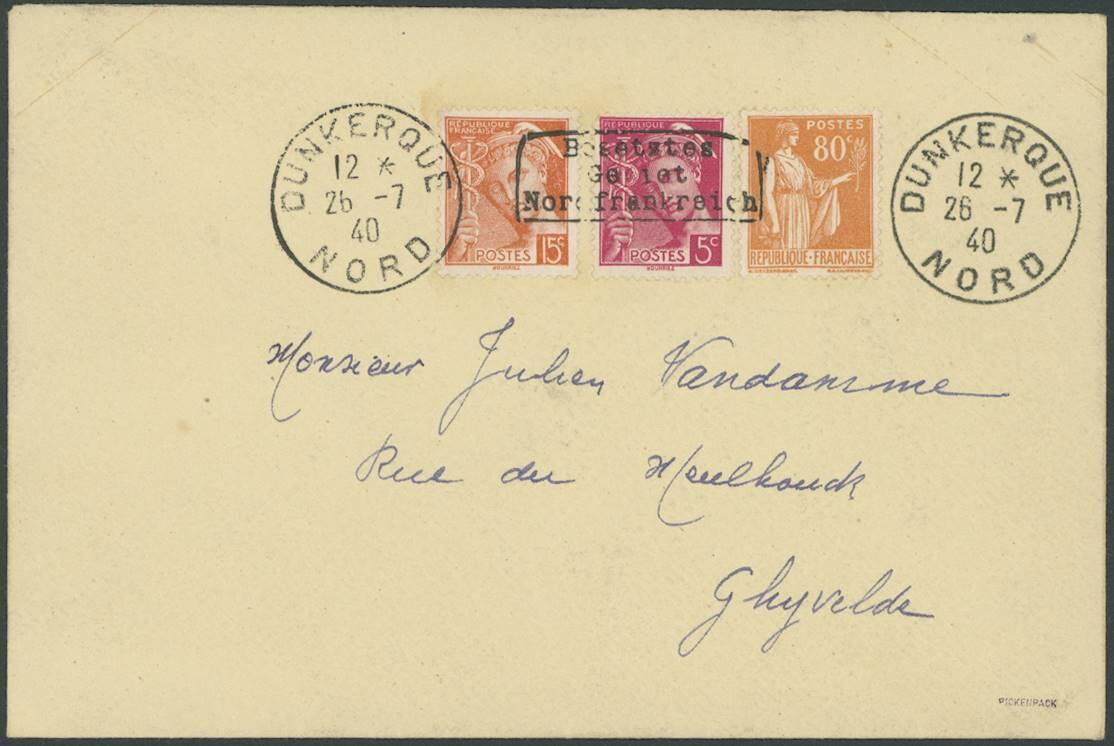 DUNKERQUE
12 *
26 -7
40
NORD
RÉPUBLIQUE
FRANÇAISE
POSTES 15c
RÉPUBLIQUE
POSTES 5c
Besetztes
Gebiet
Nordfrankreich
POSTES
80c
REPUBLIQUE-FRANÇAISE
DUNKERQUE
12 *
26 -7
40
NORD
Monsieur Julien Vandamme
Rue du Meulhouck
Ghyvelde
PICKENPACK